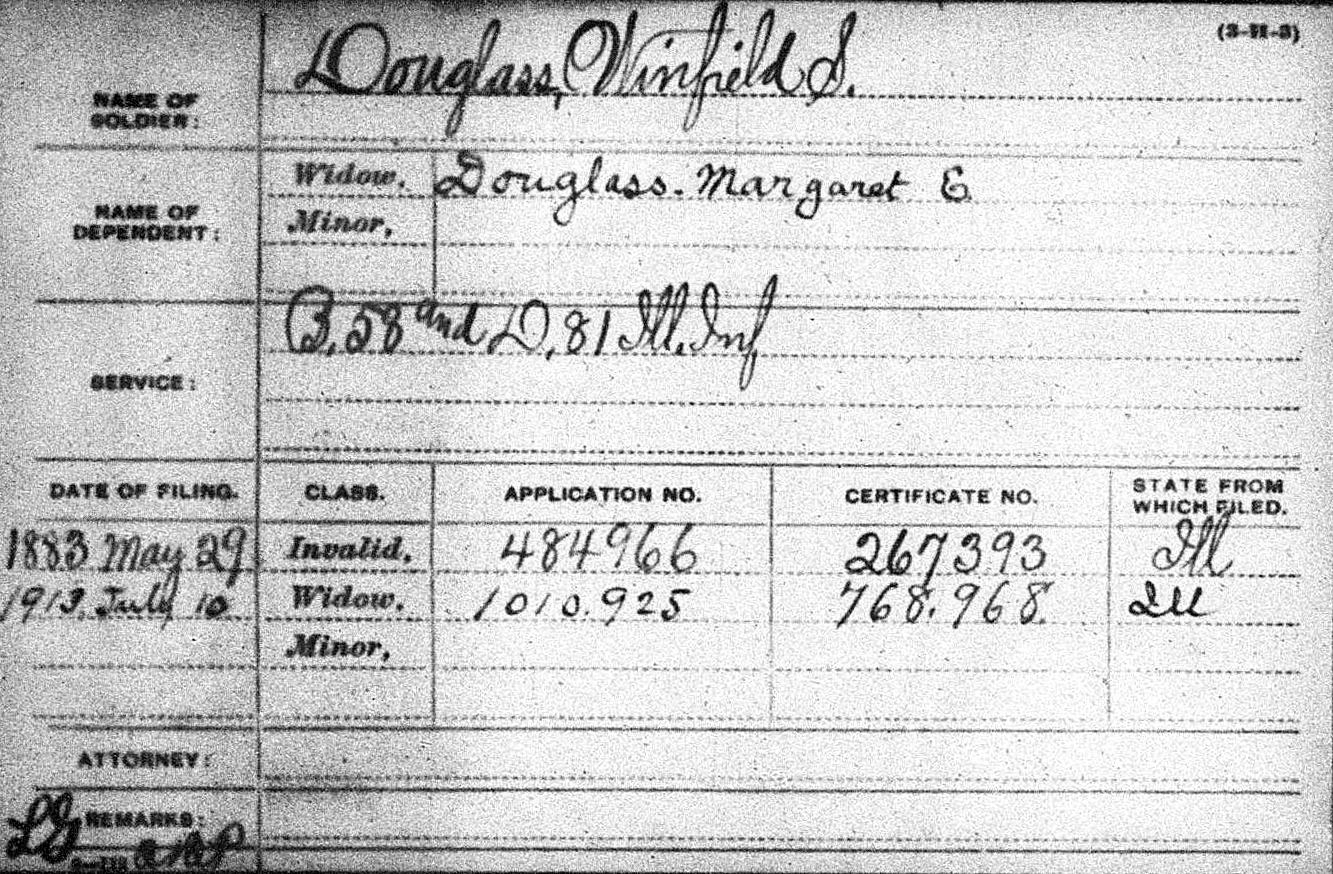 (3-11-3)
NAME OF SOLDIER: Douglass, Winfield S.
NAME OF DEPENDENT: Widow, Douglass. Margaret E
Minor,
SERVICE: B, 58 and D, 81 Ill. Inf
DATE OF FILING. CLASS. APPLICATION NO. CERTIFICATE NO. STATE FROM WHICH FILED.
1883 May 29 Invalid, 484966 267393 Ill
1913, July 10 Widow, 1010.925 768.968 Ill
Minor,
ATTORNEY:
REMARKS: